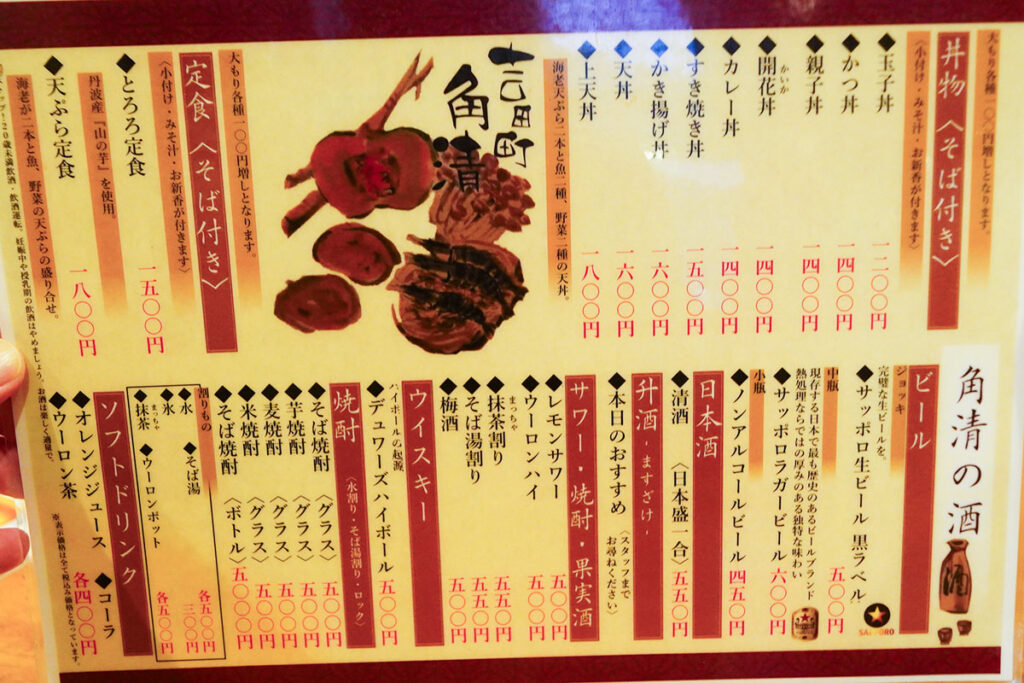 丼物〈そば付き〉
大もり各種一〇〇円増しとなります。
〈小付け・みそ汁・お新香が付きます〉
◆玉子丼 一二〇〇円
◆かつ丼 一四〇〇円
◆親子丼 一四〇〇円
◆開花丼 一四〇〇円
かいか
◆カレー丼 一四〇〇円
◆すき焼き丼 一五〇〇円
◆かき揚げ丼 一六〇〇円
◆天丼 一六〇〇円
◆上天丼 一八〇〇円
海老天ぷら二本と魚二種、野菜二種の天丼。
角清
定食〈そば付き〉
大もり各種一〇〇円増しとなります。
〈小付け・みそ汁・お新香が付きます〉
◆とろろ定食 一五〇〇円
丹波産『山の芋』を使用。
◆天ぷら定食 一八〇〇円
海老が二本と魚、野菜の天ぷらの盛り合せ。
20歳未満飲酒・飲酒運転。妊娠中や授乳期の飲酒はやめましょう。お酒は楽しく適量で。
角清の酒
酒
ビール
ジョッキ
完璧な生ビールを。
◆サッポロ生ビール 黒ラベル
SAPPORO
五〇〇円
中瓶
現存する日本で最も歴史のあるビールブランド
熱処理ならではの厚みのある独特な味わい
◆サッポロラガービール 六〇〇円
小瓶
◆ノンアルコールビール 四五〇円
日本酒
◆清酒 〈日本盛一合〉 五五〇円
升酒 -ますざけ-
◆本日のおすすめ 〈スタッフまでお尋ねください〉
サワー・焼酎・果実酒
◆レモンサワー 五〇〇円
◆ウーロンハイ 五〇〇円
◆抹茶割り 五五〇円
まっちゃ
◆そば湯割り 五五〇円
◆梅酒 五〇〇円
ウイスキー
ハイボールの起源
◆デュワーズハイボール 五〇〇円
焼酎 〈水割り・そば湯割り・ロック〉
◆そば焼酎 〈グラス〉 五〇〇円
◆芋焼酎 〈グラス〉 五〇〇円
◆麦焼酎 〈グラス〉 五〇〇円
◆米焼酎 〈グラス〉 五〇〇円
◆そば焼酎 〈ボトル〉 五〇〇〇円
割りもの
◆水 ◆そば湯 各五〇円
◆氷 三〇〇円
◆抹茶 ◆ウーロンポット 各五〇〇円
まっちゃ
ソフトドリンク
◆オレンジジュース ◆コーラ
◆ウーロン茶 各四〇〇円
※表示価格は全て税込み価格となっています。